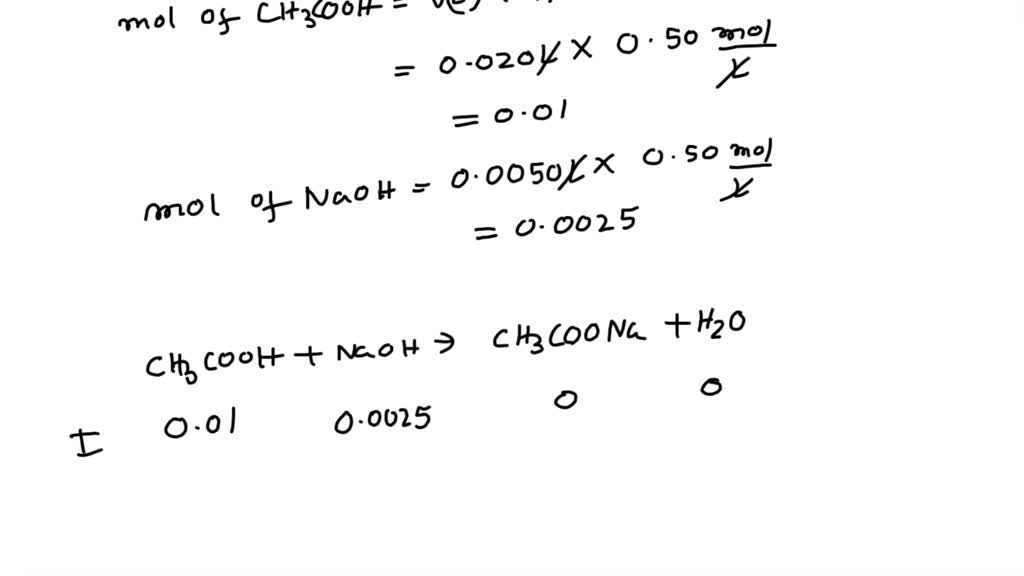 mol of CH3COOH =
= 0.020L × 0.50 mol/L
= 0.01
mol of NaOH = 0.0050L × 0.50 mol/L
= 0.0025
CH3COOH + NaOH → CH3COONa + H2O
I 0.01 0.0025 0 0